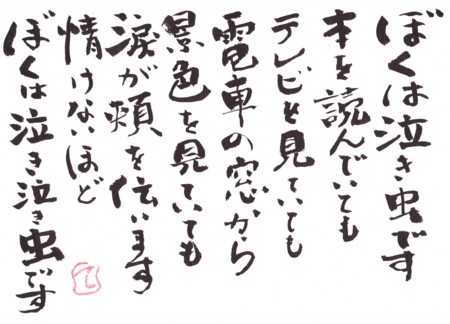 ぼくは泣き虫です
本を読んでいても
テレビを見ていても
電車の窓から
景色を見ていても
涙が頬を伝います
情けないほど
ぼくは泣き泣き虫です